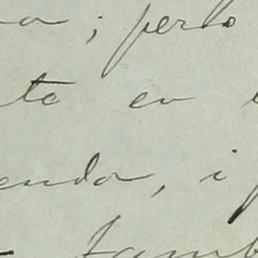 a; pero
to en
enda, i
tamb